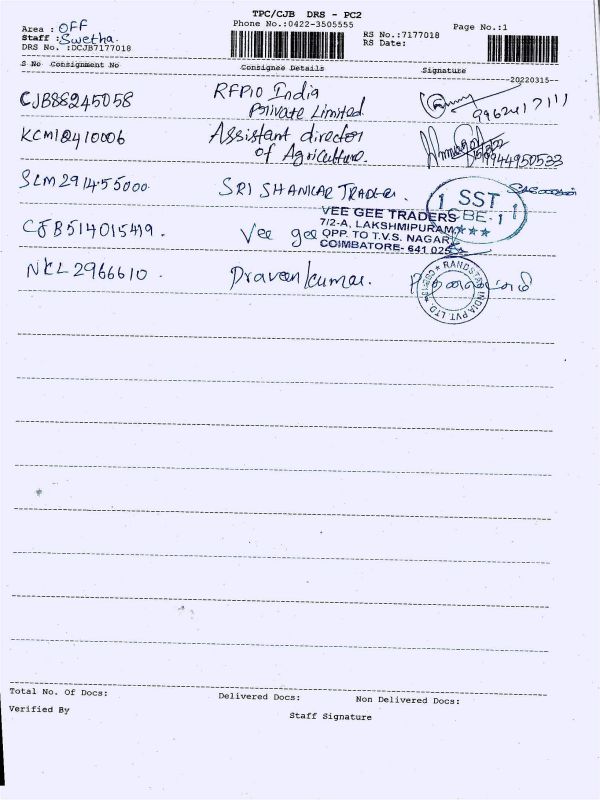 TPC/CJB DRS - PC2
Phone No.:0422-3505555
Page No.:1
Area : OFF
Staff : Swetha.
DRS No. :DCJB7177018
RS No.:7177018
RS Date:
S No Consignment No Consignee Details Signature
--20220315--
CJB88245058 RFPIO India
Private Limited 9962417111
KCM102410006 Assistant director
of Agriculture. 9944950533
SLM291455000 SRI SHANKAR TRADER.
1 SST
CBE-1
CJB514015419. Vee gee
VEE GEE TRADERS
7/2-A, LAKSHMIPURAM
OPP. TO T.V.S. NAGAR
COIMBATORE- 641 025
NKL2966610 . Praveen kumar.
RANDSTAD INDIA PVT. LTD.
Total No. Of Docs: Delivered Docs: Non Delivered Docs:
Verified By Staff Signature